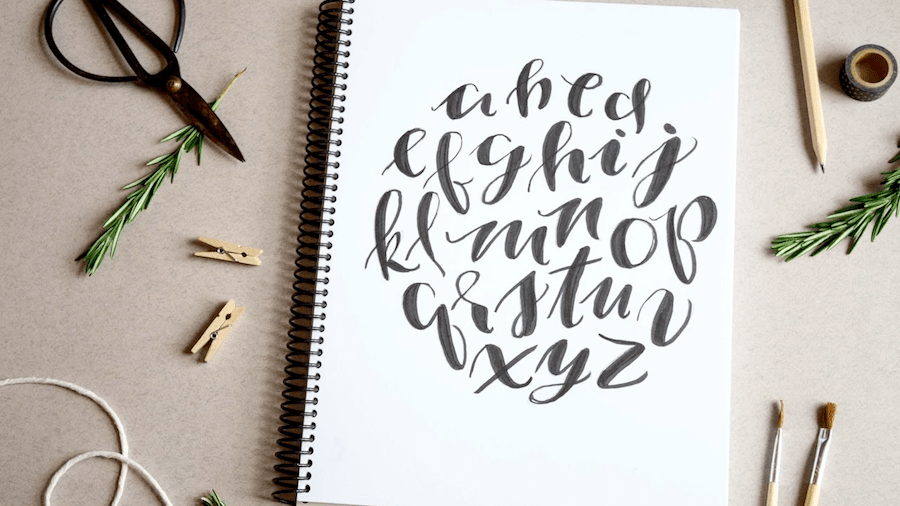 a b c d
e f g h i j
k l m n o p
q r s t u v
x y z